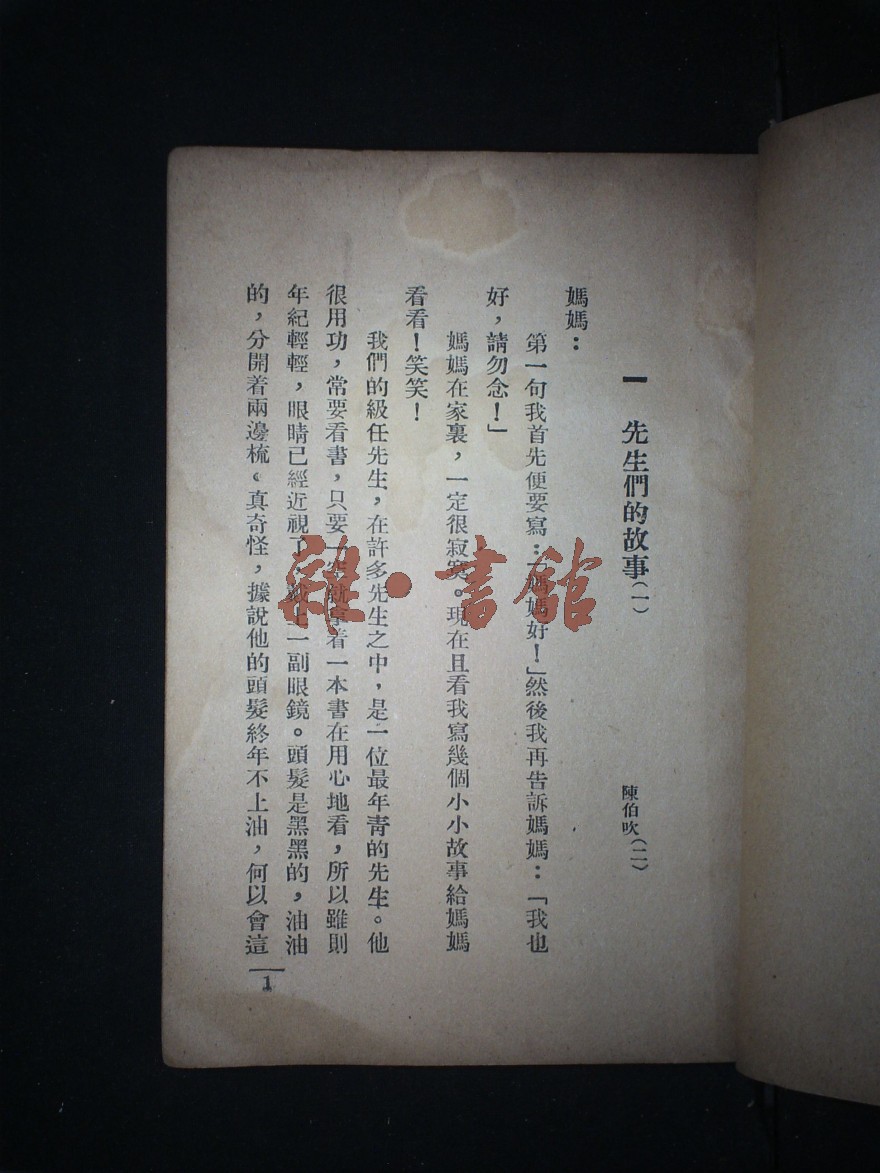 一 先生們的故事(一)
陳伯吹(二)
媽媽：
第一句我首先便要寫：「媽媽好！」然後我再告訴媽媽：「我也
好，請勿念！」
媽媽在家裏，一定很寂寞。現在且看我寫幾個小小故事給媽媽
看看！笑笑！
我們的級任先生，在許多先生之中，是一位最年青的先生。他
很用功，常要看書，只要一空就拿着一本書在用心地看，所以雖則
年紀輕輕，眼睛已經近視了，戴上一副眼鏡。頭髮是黑黑的，油油
的，分開着兩邊梳。真奇怪，據說他的頭髮終年不上油，何以會這
1
雜·書館